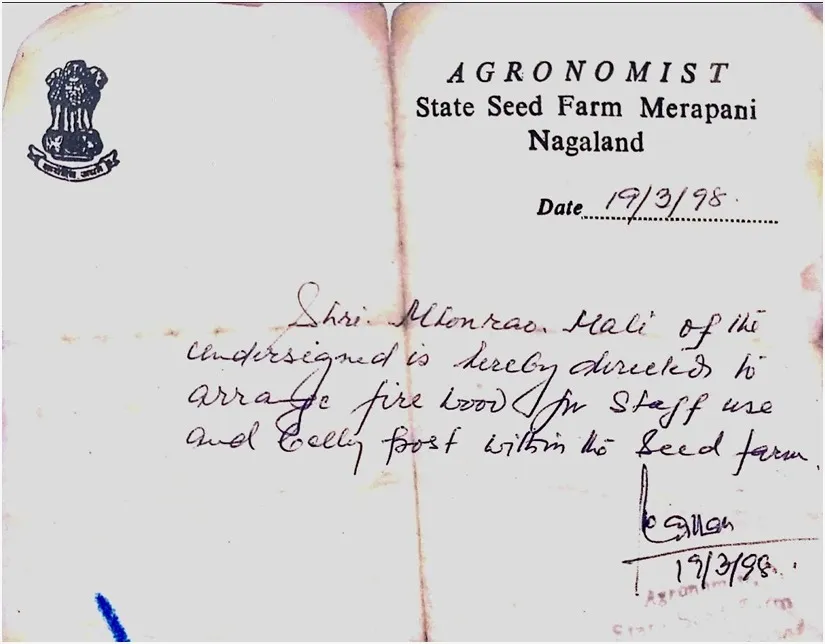 सत्यमेव जयते
AGRONOMIST
State Seed Farm Merapani
Nagaland
Date 19/3/98.
Shri. Mhonrao. Mali of the
undersigned is hereby directed to
arrange fire wood for Staff use
and post within the Seed farm.
19/3/98.
Agronomist
State Seed Farm